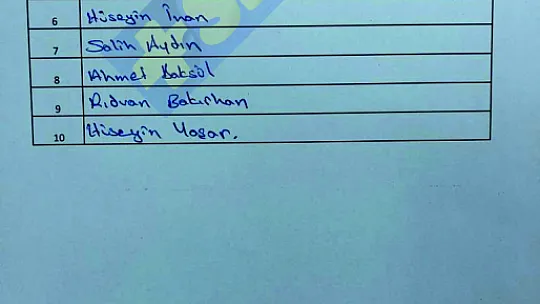 6 Hüseyin İnan
7 Salih Aydın
8 Ahmet Baksül
9 Rıdvan Bakırhan
10 Hüseyin Yaşar.